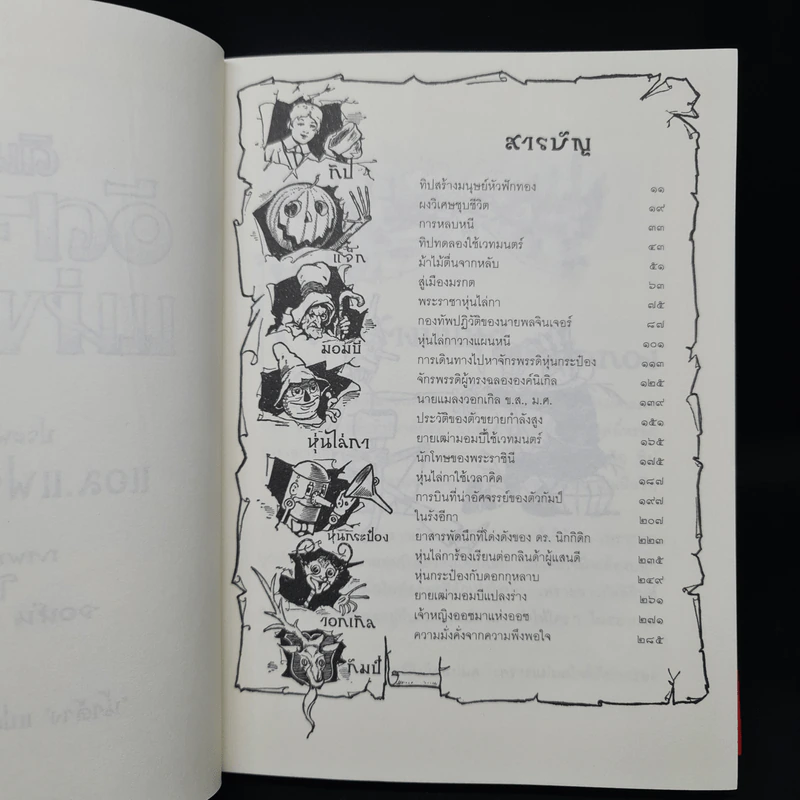 สารบัญ
ทิป
แจ็ก
มอมบี
หุ่นไล่กา
หุ่นกระป๋อง
วอกเกิล
กัมป์
ทิปสร้างมนุษย์หัวฟักทอง ๑๑
ผงวิเศษชุบชีวิต ๑๙
การหลบหนี ๓๓
ทิปทดลองใช้เวทมนตร์ ๔๓
ม้าไม้ตื่นจากหลับ ๕๑
สู่เมืองมรกต ๖๓
พระราชาหุ่นไล่กา ๗๕
กองทัพปฏิวัติของนายพลจินเจอร์ ๘๗
หุ่นไล่กาวางแผนหนี ๑๐๑
การเดินทางไปหาจักรพรรดิหุ่นกระป๋อง ๑๑๓
จักรพรรดิผู้ทรงฉลององค์นิเกิล ๑๒๕
นายแมลงวอกเกิล ข.ส., ม.ศ. ๑๓๙
ประวัติของตัวขยายกำลังสูง ๑๕๑
ยายเฒ่ามอมบี้ใช้เวทมนตร์ ๑๖๕
นักโทษของพระราชินี ๑๗๕
หุ่นไล่กาใช้เวลาคิด ๑๘๗
การบินที่น่าอัศจรรย์ของตัวกัมป์ ๑๙๗
ในรังอีกา ๒๐๗
ยาสารพัดนึกที่โด่งดังของ ดร. นิกกิดิก ๒๒๓
หุ่นไล่การ้องเรียนต่อกลินด้าผู้แสนดี ๒๓๕
หุ่นกระป๋องกับดอกกุหลาบ ๒๔๙
ยายเฒ่ามอมบีแปลงร่าง ๒๖๑
เจ้าหญิงออซมาแห่งออซ ๒๗๑
ความมั่งคั่งจากความพึงพอใจ ๒๘๕